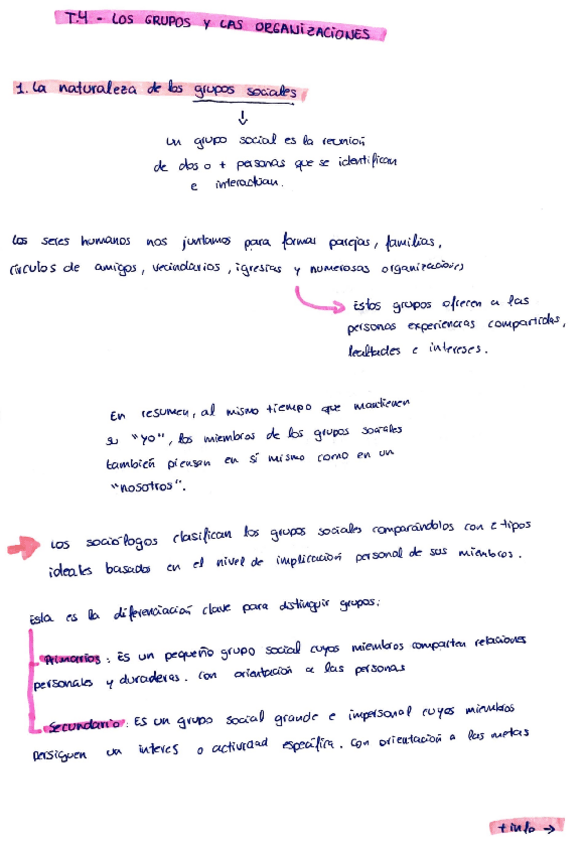 T.4 - LOS GRUPOS Y LAS ORGANIZACIONES
1. La naturaleza de los grupos sociales
↓
Un grupo social es la reunión
de dos o + personas que se identifican
e interactúan.
Los seres humanos nos juntamos para formar parejas, familias,
círculos de amigos, vecindarios, iglesias y numerosas organizaciones
Estos grupos ofrecen a las
personas experiencias compartidas,
lealtades e intereses.
En resumen, al mismo tiempo que mantienen
su "yo", los miembros de los grupos sociales
también piensan en sí mismo como en un
"nosotros".
Los sociólogos clasifican los grupos sociales comparándolos con 2 tipos
ideales basados en el nivel de implicación personal de sus miembros.
Esta es la diferenciación clave para distinguir grupos:
Primarios: Es un pequeño grupo social cuyos miembros comparten relaciones
personales y duraderas. Con orientación a las personas
Secundario: Es un grupo social grande e impersonal cuyos miembros
persiguen un interés o actividad específica. Con orientación a las metas
+ info →